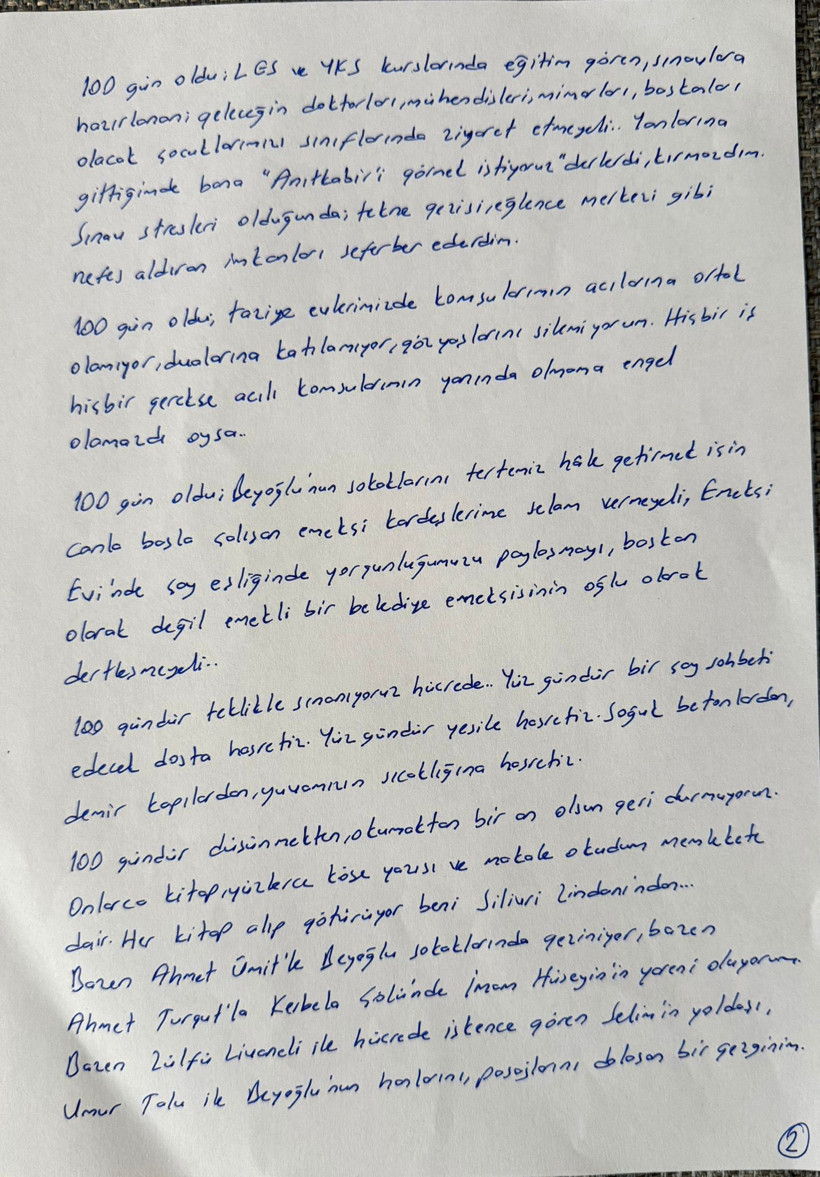 100 gün oldu; LGS ve YKS kurslarında eğitim gören, sınavlara
hazırlanan; geleceğin doktorları, mühendisleri, mimarları, başkaları
olacak çocuklarımızı sınıflarında ziyaret etmeyeli.. Yanlarına
gittiğimde bana "Anıtkabir'i görmek istiyoruz" derlerdi, kırmazdım.
Sınav stresleri olduğunda; tekne gezisi, eğlence merkezi gibi
nefes aldıran imkanları seferber ederdim.
100 gün oldu; taziye evlerimizde komşularımın acılarına ortak
olamıyor, dualarına katılamıyor, göz yaşlarını silemiyorum. Hiçbir iş
hiçbir gerekçe acılı komşularımın yanında olmama engel
olamazdı oysa..
100 gün oldu; Beyoğlu'nun sokaklarını tertemiz hale getirmek için
canla başla çalışan emekçi kardeşlerime selam vermeyeli, Emekçi
Evi'nde çay eşliğinde yorgunluğumuzu paylaşmayı, başkan
olarak değil emekli bir belediye emekçisinin oğlu olarak
dertleşmeyeli..
100 gündür teklikle sınanıyoruz hücrede.. Yüz gündür bir çay sohbeti
edecek dosta hasretiz. Yüz gündür yeşile hasretiz. Soğuk betonlardan,
demir kapılardan, yuvamızın sıcaklığına hasretiz.
100 gündür düşünmekten, okumaktan bir an olsun geri durmuyoruz.
Onlarca kitap, yüzlerce köşe yazısı ve makale okudum memlekete
dair. Her kitap alıp götürüyor beni Silivri Zindanı'ndan...
Bazen Ahmet Ümit'le Beyoğlu sokaklarında geziniyor, bazen
Ahmet Turgut'la Kerbela Çölü'nde İmam Hüseyin'in yareni oluyorum.
Bazen Zülfü Livaneli ile hücrede işkence gören Selim'in yoldaşı,
Umur Talu ile Beyoğlu'nun hanlarını, pasajlarını dolaşan bir gezginim.
2